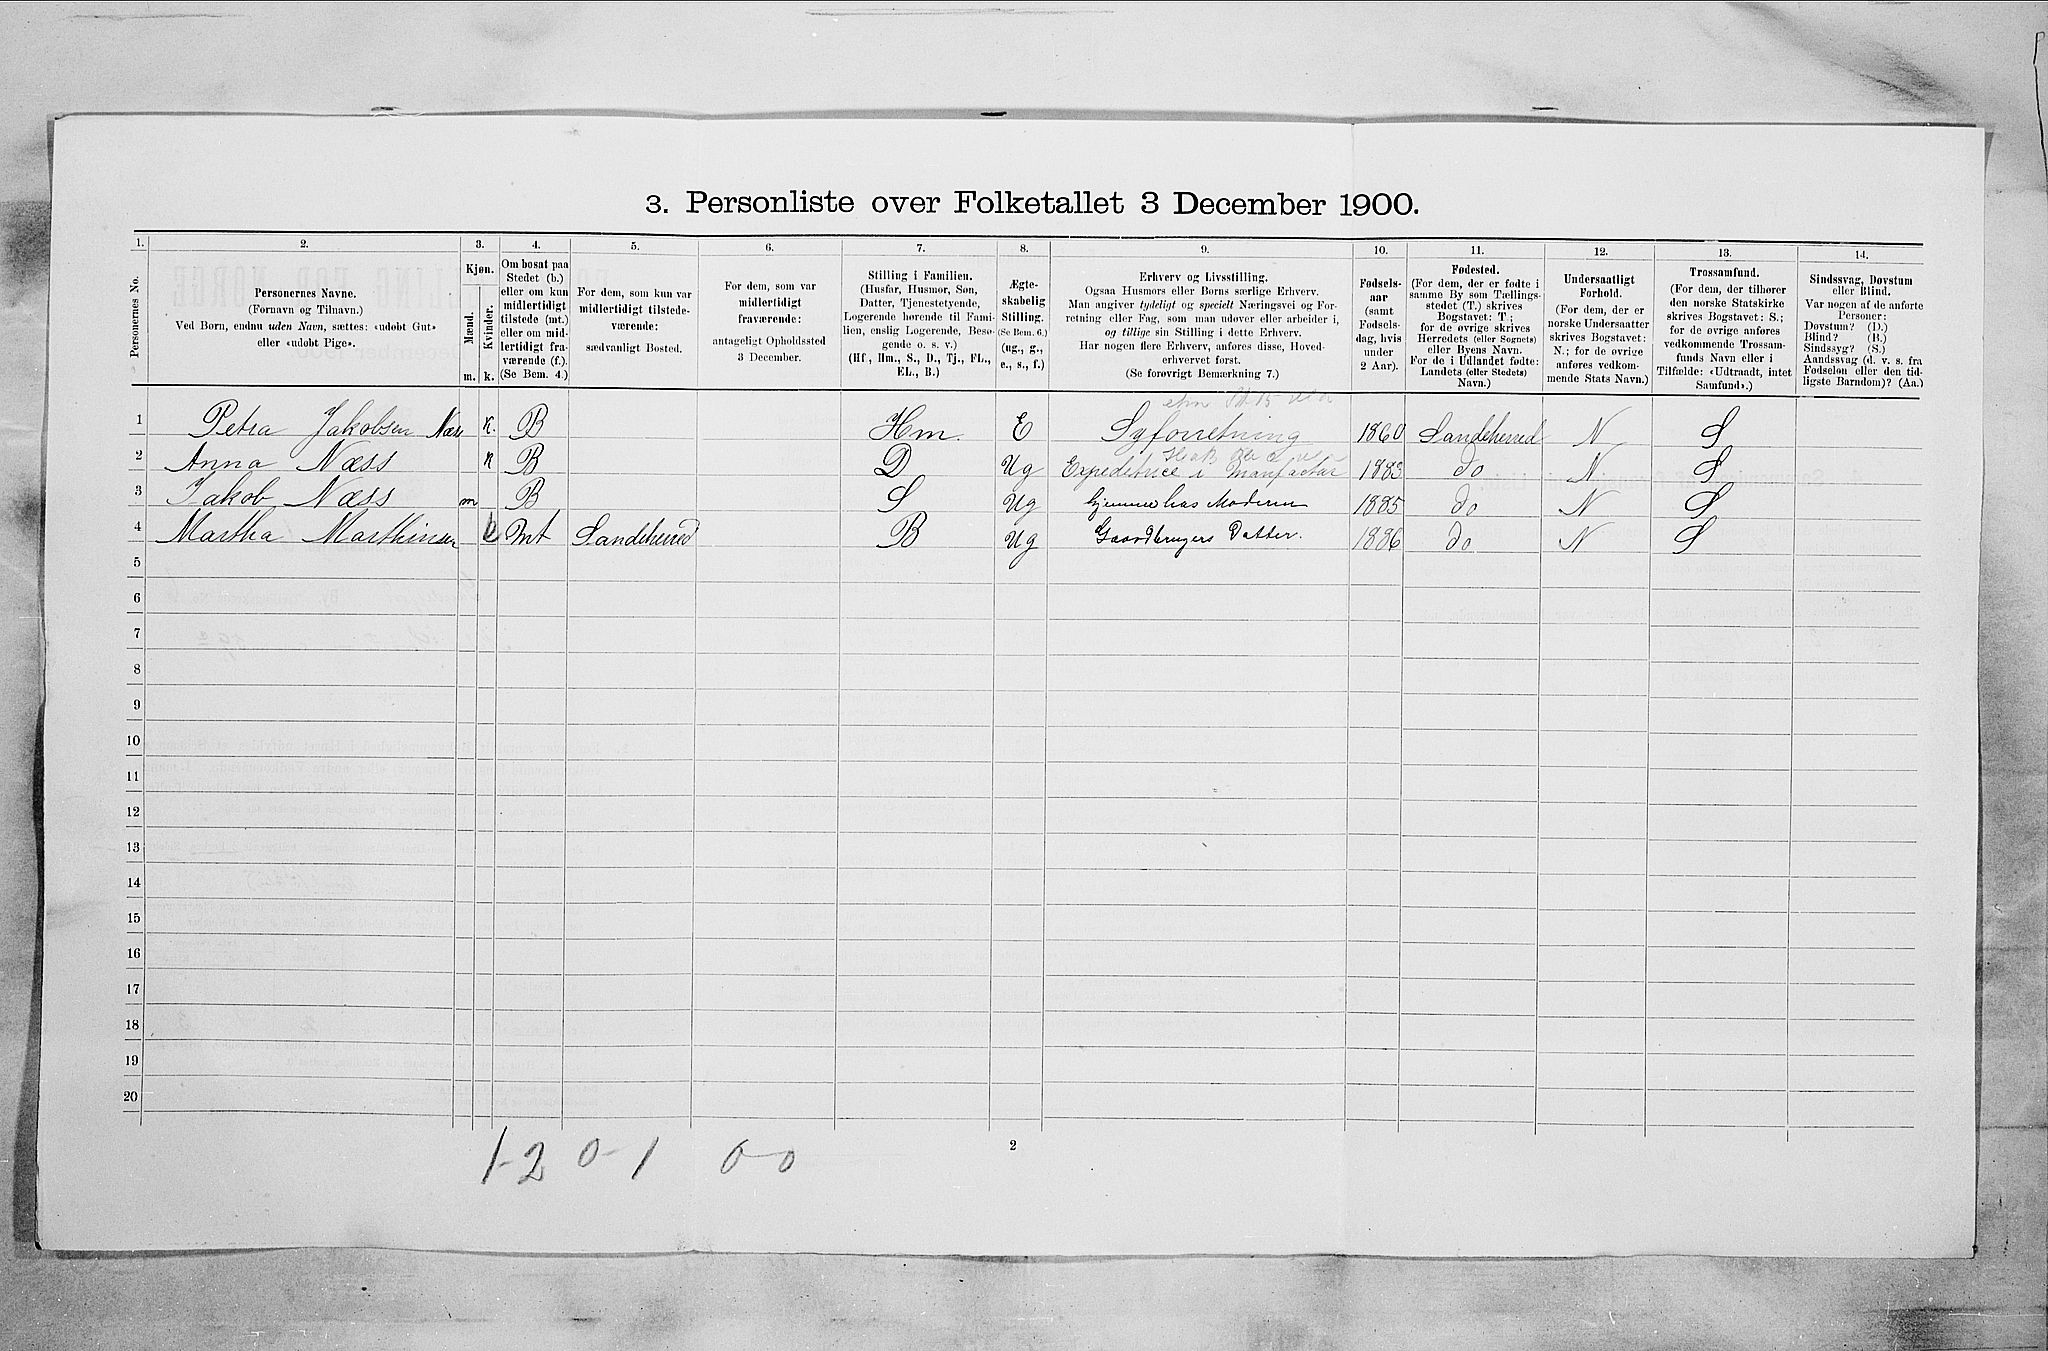 3. Personliste over Folketallet 3 December 1900.
1. 2. 3. 4. 5. 6. 7. 8. 9. 10. 11. 12. 13. 14.
Personernes No.
Personernes Navne.
(Fornavn og Tilnavn.)
Ved Børn, endnu uden Navn, sættes: «udøbt Gut»
eller «udøbt Pige».
Kjøn.
Mænd. Kvinder.
m. k.
Om bosat paa
Stedet (b.)
eller om kun
midlertidigt
tilstede (mt.)
eller om mid-
lertidigt fra-
værende (f.).
(Se Bem. 4.)
For dem, som kun var
midlertidigt tilstede-
værende:
sædvanligt Bosted.
For dem, som var
midlertidigt
fraværende:
antageligt Opholdssted
3 December.
Stilling i Familien.
(Husfar, Husmor, Søn,
Datter, Tjenestetyende,
Logerende hørende til Fami-
lien, enslig Logerende, Besø-
gende o. s. v.)
(Hf, Hm., S., D., Tj., FL.,
EL., B.)
Ægte-
skabelig
Stilling.
(Se Bem. 6.)
(ug., g.,
e., s., f.)
Erhverv og Livsstilling.
Ogsaa Husmors eller Børns særlige Erhverv.
Man angiver tydeligt og specielt Næringsvei og For-
retning eller Fag, som man udøver eller arbeider i,
og tillige sin Stilling i dette Erhverv.
Har nogen flere Erhverv, anføres disse, Hoved-
erhvervet først.
(Se forøvrigt Bemærkning 7.)
Fødsels-
aar
(samt
Fødsels-
dag, hvis
under
2 Aar).
Fødested.
(For dem, der er fødte i
samme By som Tællings-
stedet (T.) skrives
Bogstavet: T.;
for de øvrige skrives
Herredets (eller Sognets)
eller Byens Navn.
For de i Udlandet fødte:
Landets (eller Stedets)
Navn.)
Undersaatligt
Forhold.
(For dem, der er
norske Undersaatter
skrives Bogstavet:
N.; for de øvrige
anføres vedkom-
mende Stats Navn.)
Trossamfund.
(For dem, der tilhører
den norske Statskirke
skrives Bogstavet: S.;
for de øvrige anføres
vedkommende Trossam-
funds Navn eller i
Tilfælde: «Udtraadt, intet
Samfund».)
Sindssvag, Døvstum
eller Blind.
Var nogen af de anførte
Personer:
Døvstum? (D.)
Blind? (B.)
Sindssyg? (S.)
Aandssvag (d. v. s. fra
Fødselen eller den tid-
ligste Barndom)? (Aa.)
1 Petra Jakobsen Næss K. B Hm. E Syforretning 1860 Sandeherred N S
2 Anna Næss K B D Ug Expeditrice i Manfactur 1883 do N S
3 Jakob Næss m B S Ug hjemme hos Moderen 1885 do N S
4 Martha Marthinsen k Mt Sandeherred B Ug Gaardbrugers Datter. 1886 do N S
5
6
7
8
9
10
11
12
13
14
15
16
17
18
19
20
1-2 0-1 0-0
2